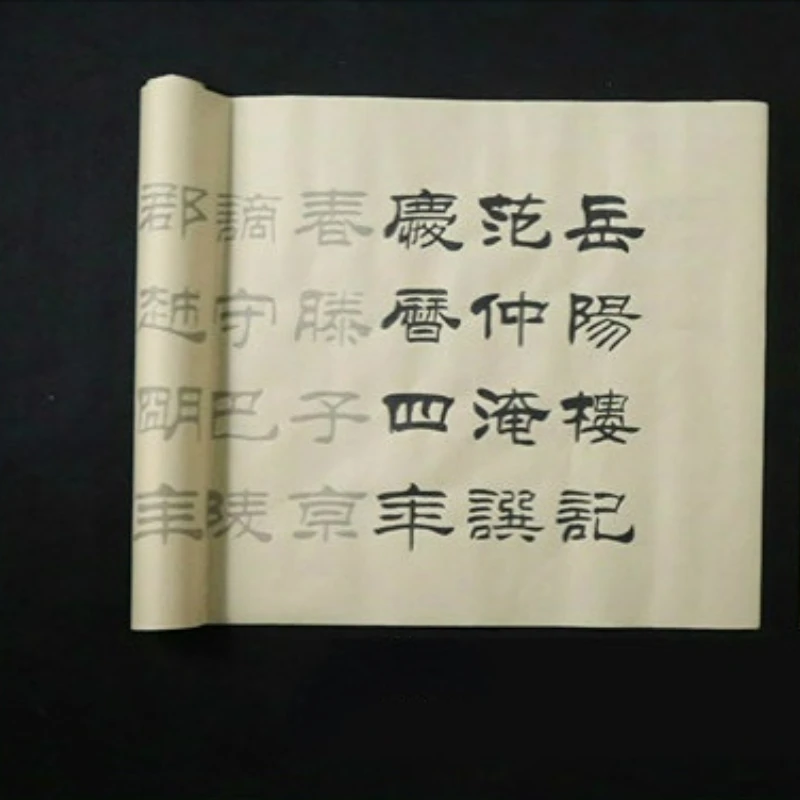 岳陽樓記
范仲淹撰
慶曆四年
春滕子京
謫守巴陵
郡越明年